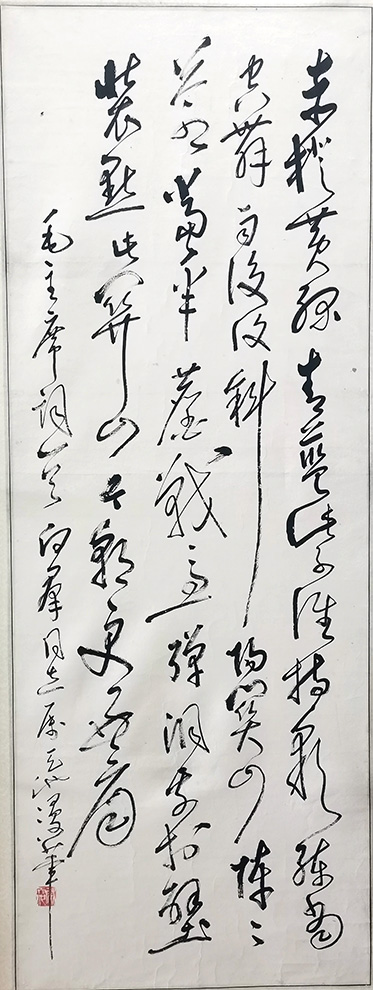 赤橙黄绿青蓝紫谁持彩练当
空舞雨后复斜阳关山阵々
苍当年鏖战急弹洞前村壁
装点此关山今朝更好看
毛主席词一首 群同志属